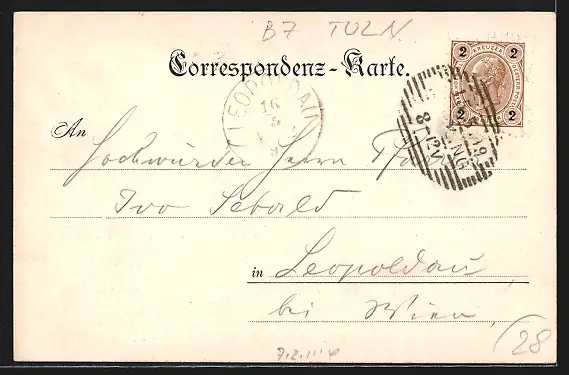 B7 TULN
Correspondenz-Karte.
2 KREUZER 2
2 2
LEOPOLDAU
16
8
An Hochwürden Herrn Pfarrer
Ivo Sebald
in Leopoldau
bei Wien.
(28